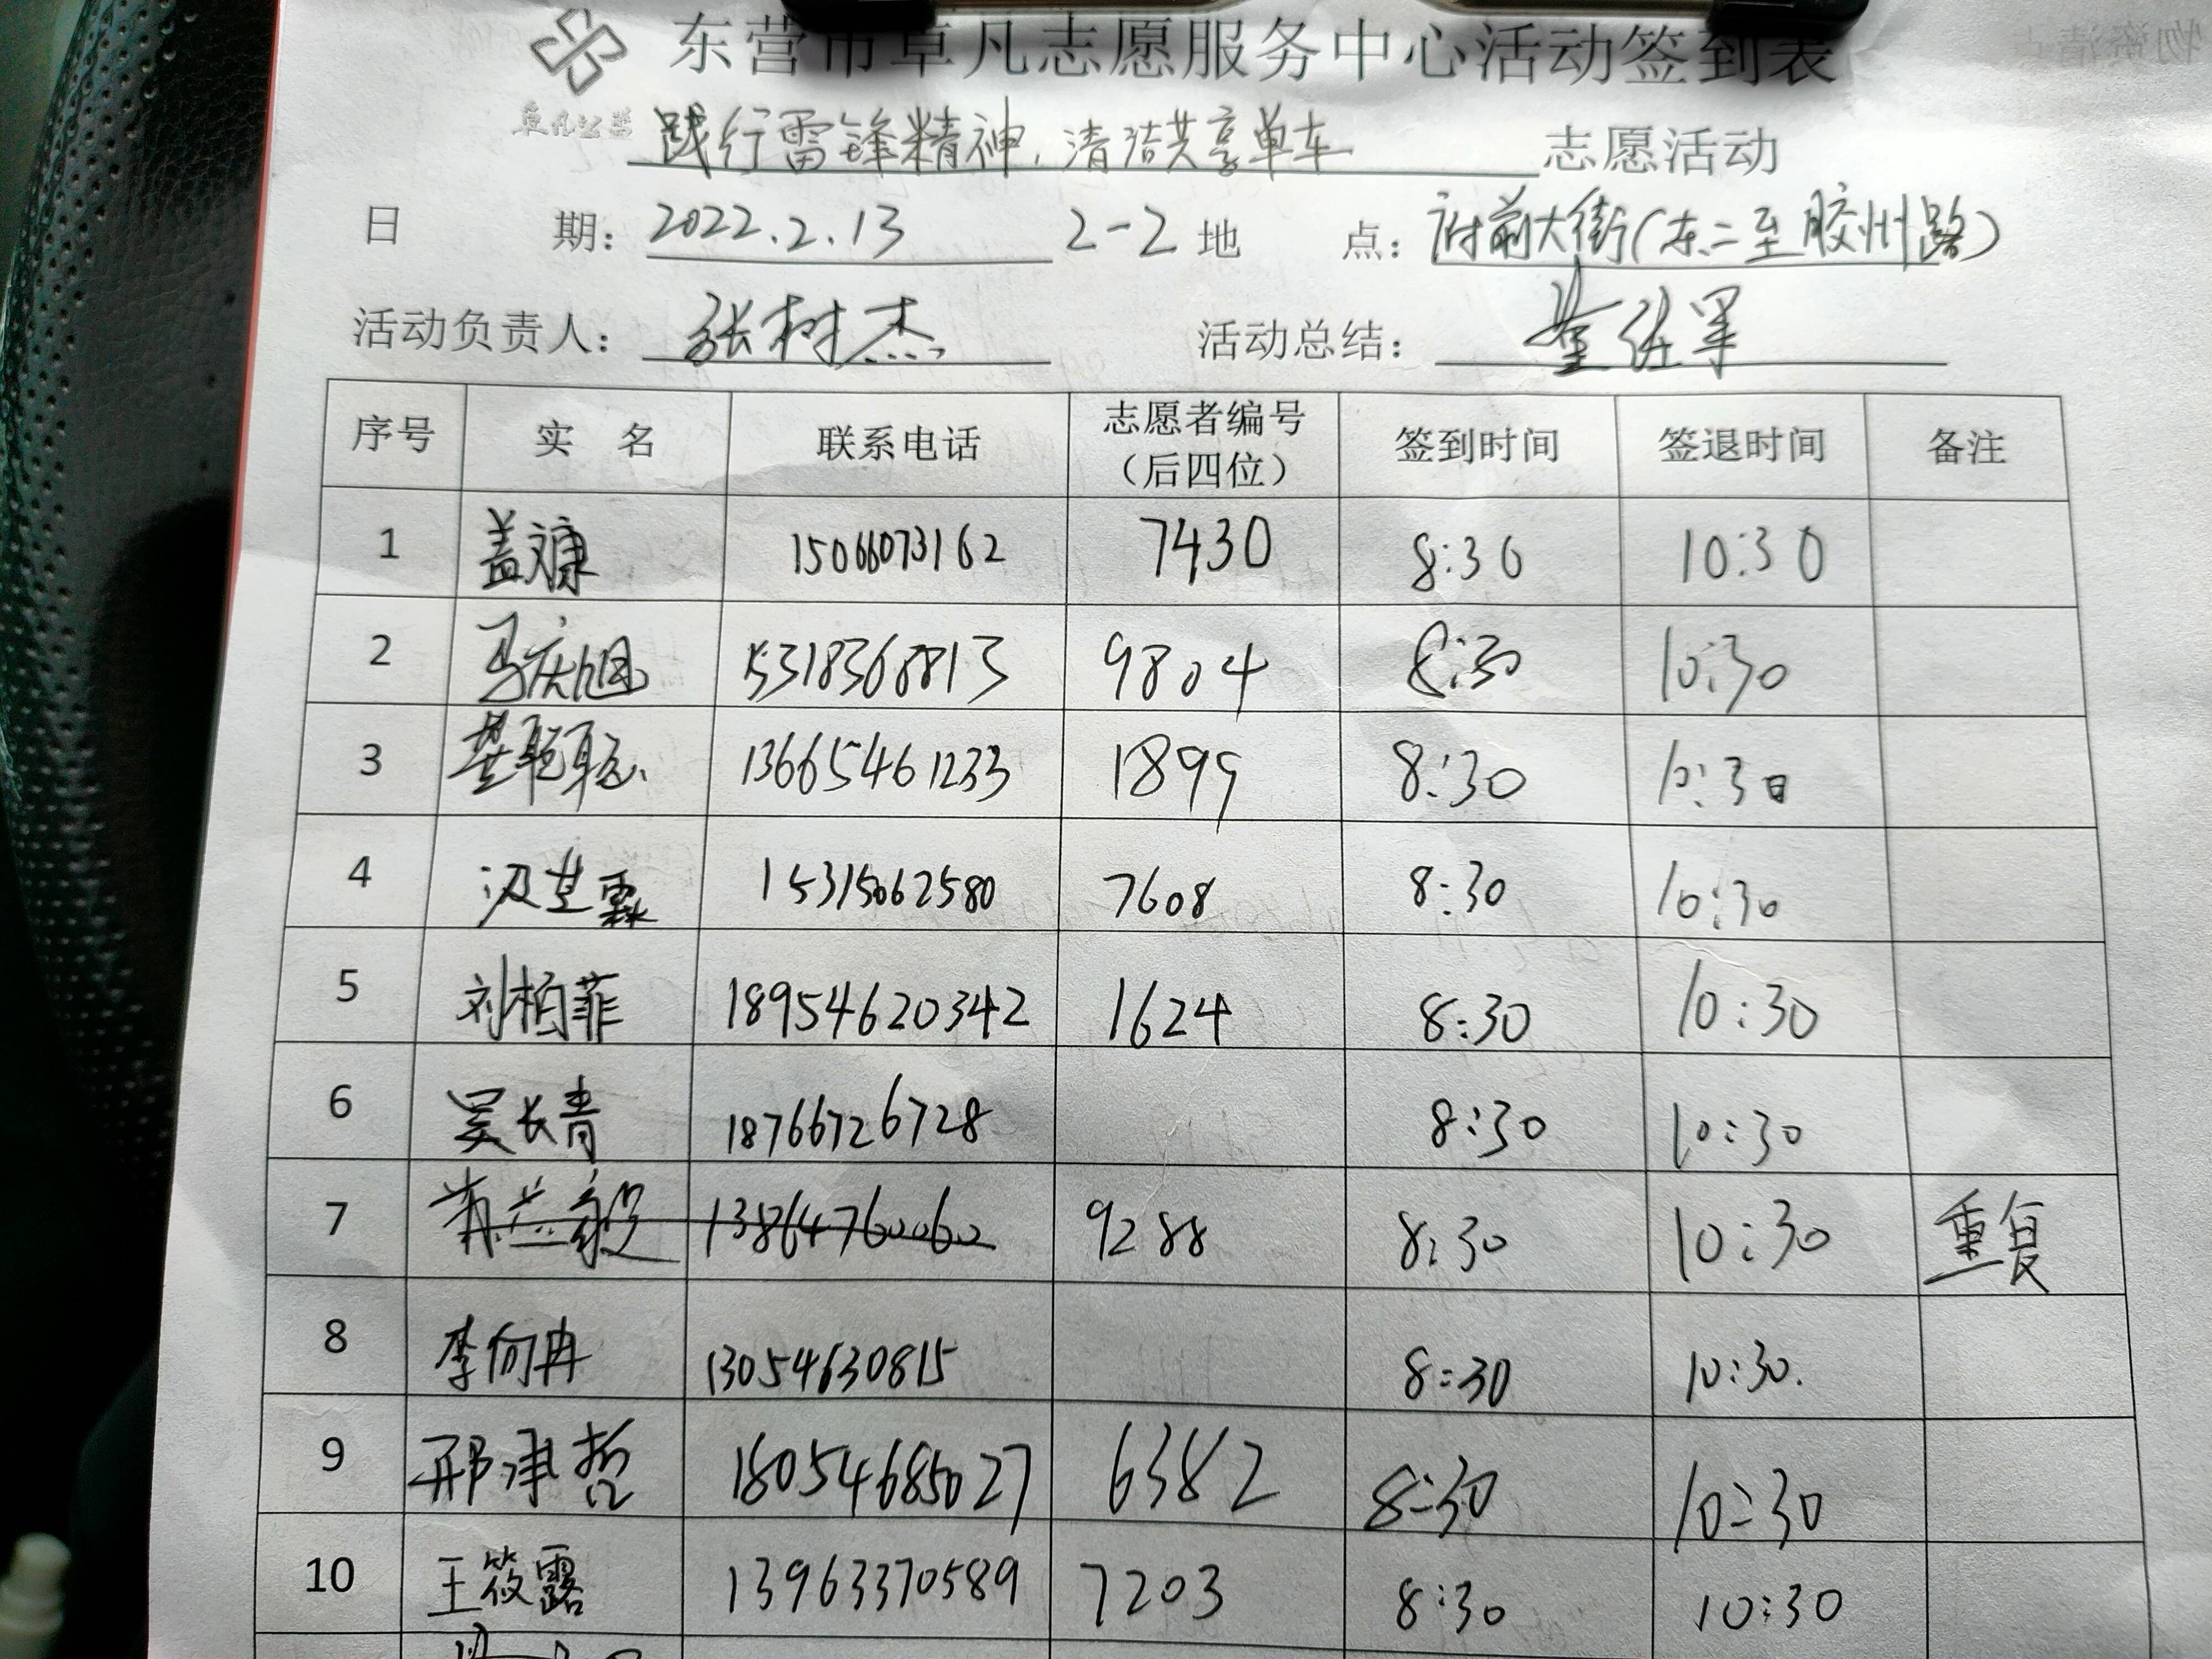 东营市草凡志愿服务中心活动签到表
践行雷锋精神,清洁共享单车 志愿活动
日 期: 2022.2.13 2-2 地 点: 府前大街(东二至胶州路)
活动负责人: 张树杰 活动总结:
序号 实 名 联系电话 志愿者编号(后四位) 签到时间 签退时间 备注
1 盖 15066073162 7430 8:30 10:30
2 马庆旭 15318368813 9804 8:30 10:30
3 綦聪聪 13665461233 1899 8:30 10:30
4 汲芏霖 15315062580 7608 8:30 10:30
5 刘柏菲 18954620342 1624 8:30 10:30
6 吴长青 18766726728 8:30 10:30
7 13864760060 9288 8:30 10:30 重复
8 李向冉 13054630815 8:30 10:30.
9 邢津哲 18054685027 6382 8:30 10:30
10 王筱露 13963370589 7203 8:30 10:30